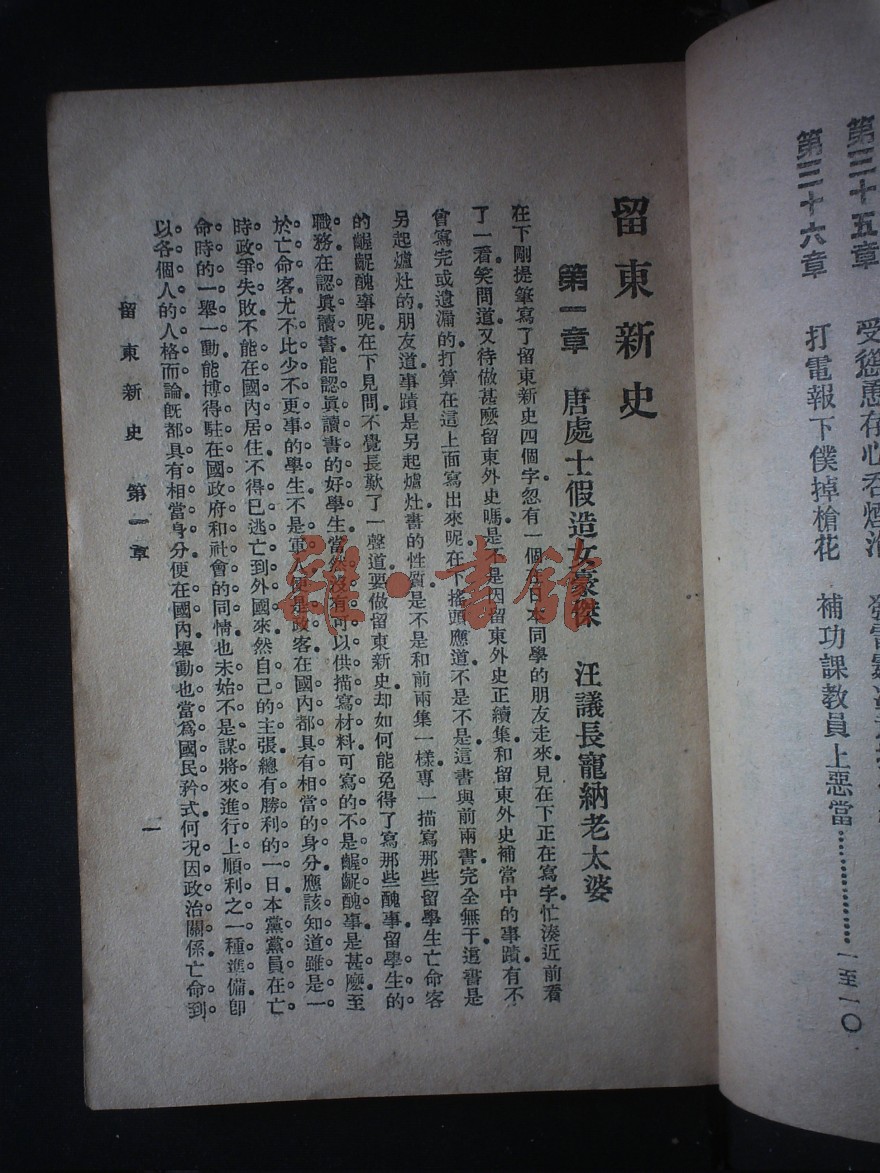 第三十五章
第三十六章 打電報下僕掉槍花 補功課教員上惡當………………一至一〇
留東新史
第一章 唐處士假造女豪傑 汪議長寵納老太婆
在下剛提筆寫了留東新史四個字忽有一個在日本同學的朋友走來見在下正在寫字忙湊近前看
了一看笑問道又待做甚麽留東外史嗎是不是因留東外史正續集和留東外史補當中的事蹟有不
曾寫完或遺漏的打算在這上面寫出來呢在下搖頭應道不是不是這書與前兩書完全無干這書是
另起爐灶的朋友道事蹟是另起爐灶書的性質是不是和前兩集一樣專一描寫那些留學生亡命客
的齷齪醜事呢在下見問不覺長歎了一聲道要做留東新史却如何能免得了寫那些醜事留學生的
職務在認眞讀書能認眞讀書的好學生當然沒有可以供描寫材料可寫的不是齷齪醜事是甚麽至
於亡命客尤不比少不更事的學生不是軍人便是政客在國內都具有相當的身分應該知道雖是一
時政爭失敗不能在國內居住不得已逃亡到外國來然自己的主張總有勝利的一日本黨黨員在亡
命時的一舉一動能博得駐在國政府和社會的同情也未始不是謀將來進行上順利之一種準備卽
以各個人的人格而論旣都具有相當身分便在國內舉動也當爲國民矜式何況因政治關係亡命到
留東新史 第一章
一
雜·書館